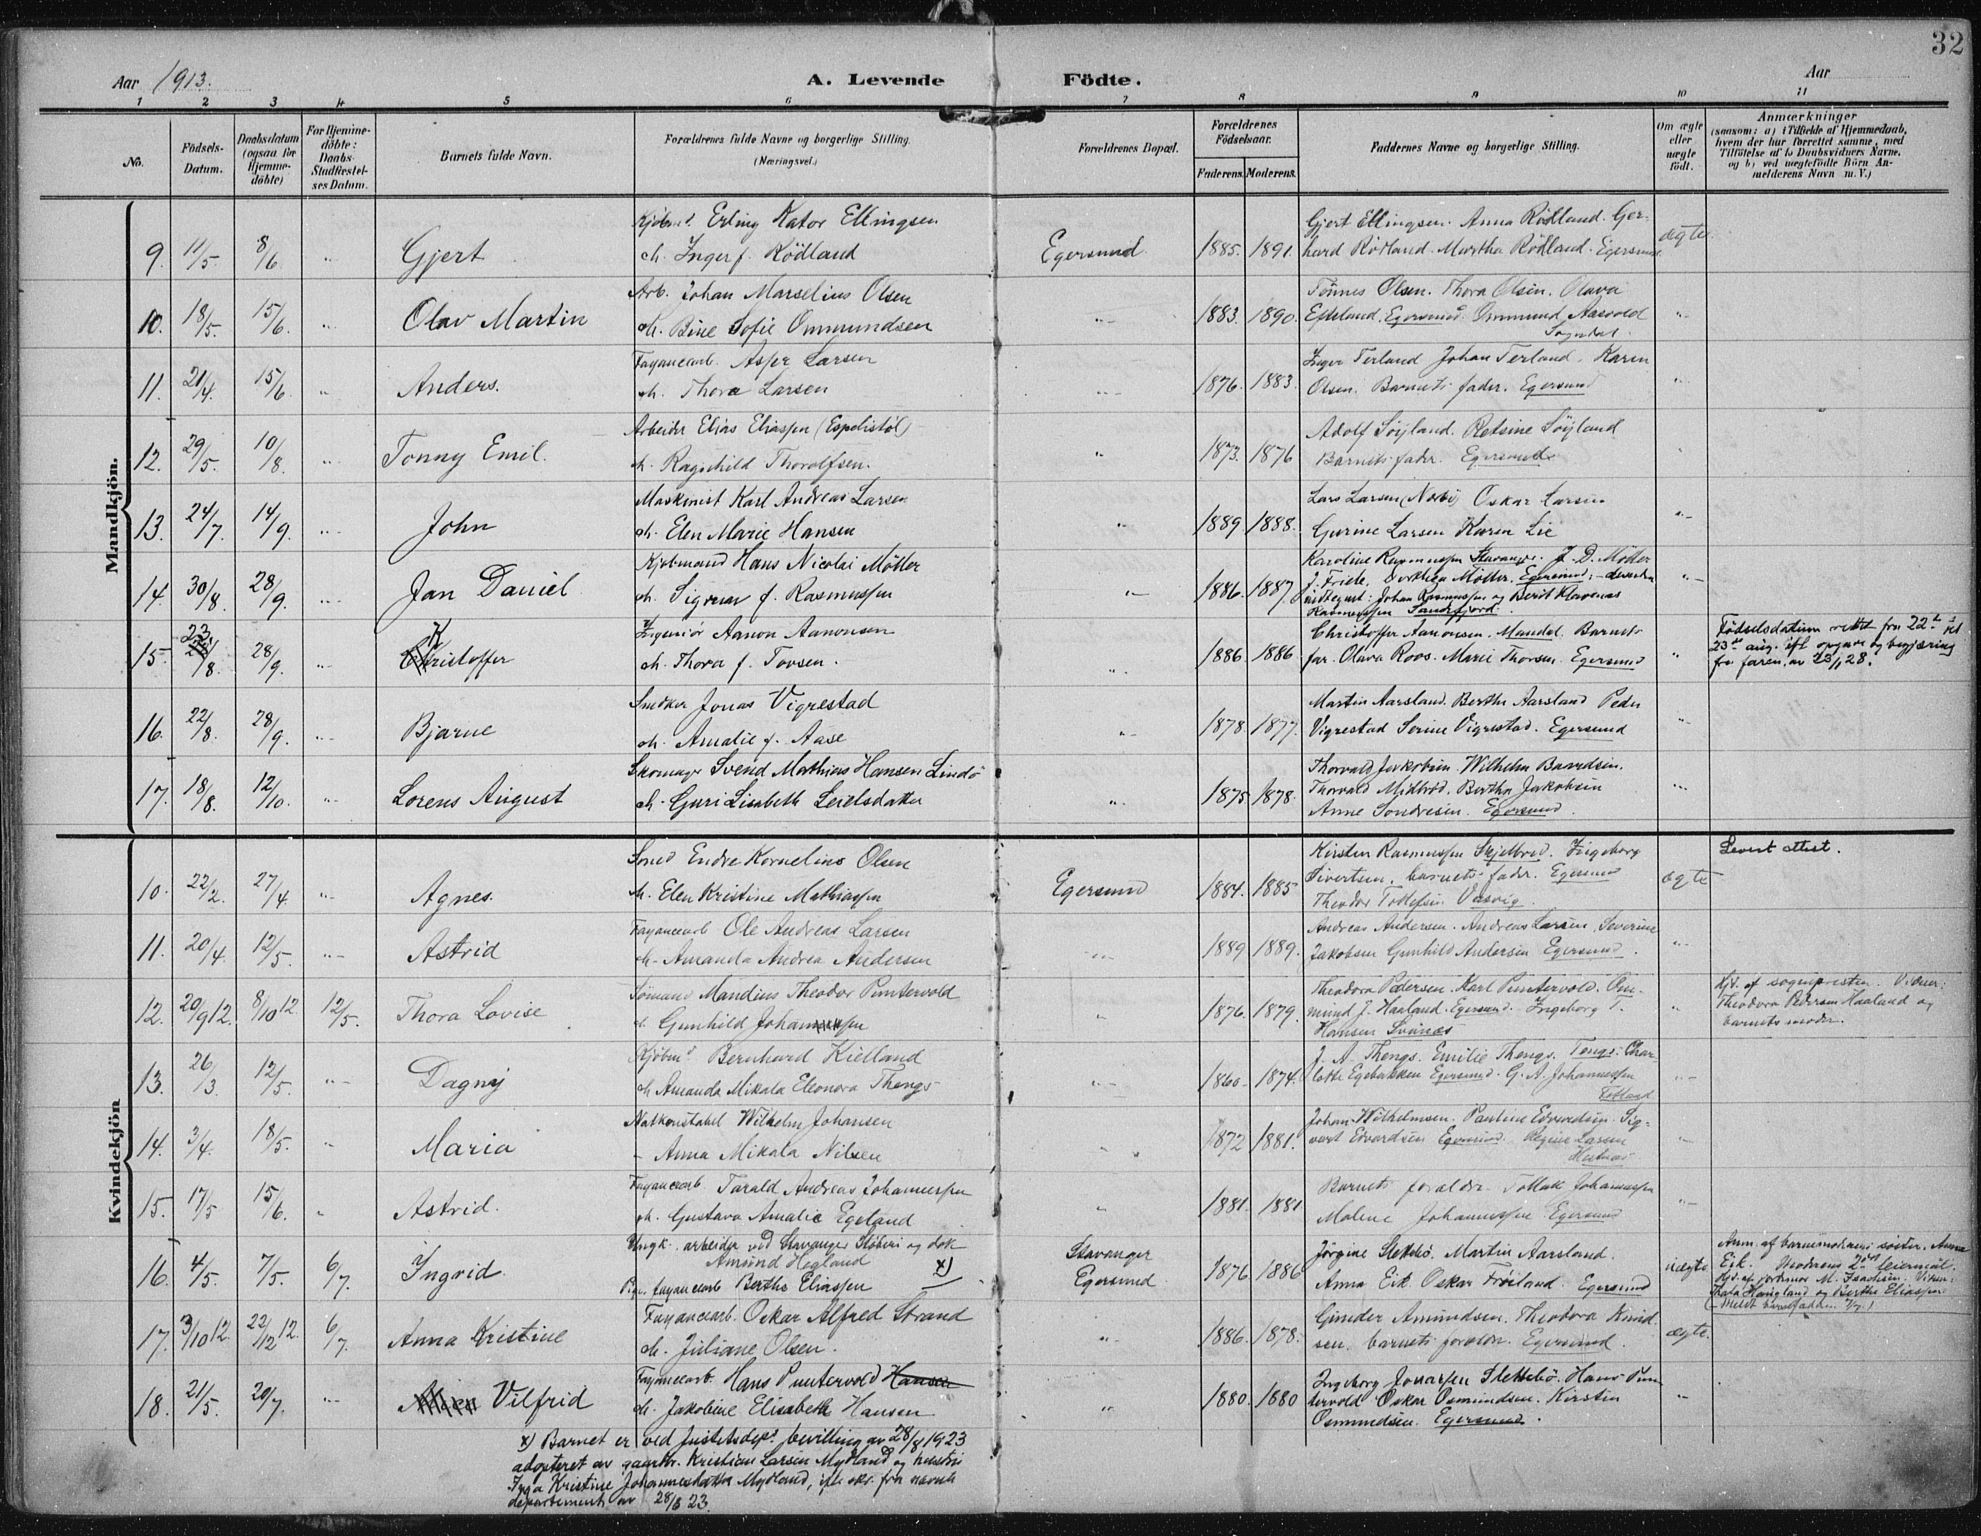 32
Aar 1913.
A. Levende Fødte.
Aar
1 2 3 4 5 6 7 8 9 10 11
No.
Fødsels-Datum.
Daabsdatum (ogsaa for Hjemmedøbte)
For Hjemmedøbte: Daabs-Stadfæstelses Datum.
Barnets fulde Navn.
Forældrenes fulde Navne og borgerlige Stilling. (Næringsvei.)
Forældrenes Bopæl.
Forældrenes Fødselsaar.
Faderens. Moderens.
Faddernes Navne og borgerlige Stilling.
Om ægte eller uægte født.
Anmærkninger
(saasom: a) i Tilfælde af Hjemmedaab, hvem der har forrettet samme, med Tilføielse af to Daabsvidners Navne, og b) ved uægtefødte Børn Anmelderens Navn m. V.)
Mandkjön.
9. 11/5 8/6 Gjert
Kjøbmd Erling Kator Ellingsen
Inger f. Rödland
Egersund. 1885. 1891.
Gjert Ellingsen. Anna Rödland. Ger-
hard Rödland. Martha Rödland. Egersund
ægte
10. 18/5 15/6 Olav Martin
Arb. Johan Marselius Olsen
Bine Sofie Ommundsen
1883. 1890.
Tönnes Olsen. Thora Olsen. Olava
Efteland. Egersund. Ommund Aasvold
Sogndal.
11. 21/4 15/6 Anders.
Fayancearb. Asper Larsen
Thora Larsen
1876. 1883.
Inger Terland Johan Terland. Karen
Olsen. Barnets fader. Egersund
12. 29/5 10/8 Tonny Emil.
Arbeider Elias Eliassen (Espelistøl)
Ragnhild Thorolfsen.
1873. 1876
Adolf Söyland. Retsine Söyland
Barnets fader. Egersund
13. 24/7 14/9 John
Maskinist Karl Andreas Larsen
Elen Marie Hansen
1889 1888.
Lars Larsen Oskar Larsen
Gurine Larsen Karen Lie
14. 30/8 28/9 Jan Daniel
Kjøbmand Hans Nicolai Møller
Signar f. Rasmussen
1886. 1887.
Karoline Rasmussen Stavanger. J. D. Møller
J. Friele, Dorthea Møller. Egersund
indtegnet: Johan Rasmussen og Berit
Rasmussen Sandefjord.
15. 23/8 28/9 Kristoffer
Ingeniør Aanon Aanonsen
Thora f. Tovsen.
1886. 1886
Christoffer Aanonsen. Mandal. Barnets
far. Olava Roos. Marie Thorsen. Egersund
Födselsdatum rettet fra 22de til
23de aug. ifl. opgave og begjæring
fra faren, av 23/1 28.
16. 22/8 28/9 Bjarne
Snedker Jonas Vigrestad
Amalie f. Aase
1878. 1877.
Martin Aarsland. Berthe Aarsland Peder
Vigrestad Serine Vigrestad. Egersund
17. 18/8 12/10 Lorens August
Skomager Svend Mathias Hansen Lindö
Guri Lisabeth Leielsdatter
1875 1878.
Thorvald Jakobsen. Wilhelm Davidsen.
Thorvald Midbröd. Bertha Jakobsen
Anne Sondresen. Egersund.
Kvindekjön
10. 22/2 27/4 Agnes.
Smed Endre Kornelius Olsen
Elen Kristine Mathiassen
Egersund 1884. 1885
Kirsten Rasmussen Skjelbred. Ingeborg
Sivertsen, barnets fader. Egersund
Theodor Tollefsen Vasvig.
ægte
Levert attest.
11. 20/4 12/5 Astrid
Fayancearb Ole Andreas Larsen
Amanda Andrea Andersen
1889 1889.
Andreas Andersen. Andreas Larsen. Severine
Jakobsen Gunhild Andersen Egersund.
12. 20/9 12. 8/10 12 12/5. Thora Lovise
Sømand Mandius Theodor Puntervold
Gunhild Johannessen
1876. 1879.
Theodora Pedersen. Karl Puntervold. Om-
mund J. Haaland. Egersund. Ingeborg T.
Hansen Svånæs
Hjd. af sognepresten. Vidner:
Theodora Pedersen Haaland og
barnets moder.
13. 26/3 12/5 Dagny
Kjøbmd Bernhard Kielland
Amanda Mikala Eleonora Thengs
1860. 1874.
J. A. Thengs. Emilie Thengs. Tengs. Char-
lotte Egebakken Egersund. G. A. Johannessen
Fotland
14. 3/4. 18/5. Maria
Natkonstabel Wilhelm Johansen
Anna Mikala Nilsen
1872 1881.
Johan Wilhelmsen. Pauline Edvardsen. Sig-
vart Edvardsen Egersund. Regine Larsen
15. 17/5 15/6. Astrid.
Fayancearb Tarald Andreas Johannessen
Gustava Amalie Egeland
1881. 1881
Barnets foraldre. Tollak Johannessen
Malene Johannessen Egersund
16. 4/5. 7/5. 6/7. Ingvid
Ungk. arbeider ved Stavanger Støberi og Dok
Amund Hegland x)
Pige, fayancearb Berthe Eliassen
Stavanger
Egersund 1876. 1886
Jörgine Slettebö. Martin Aarsland.
Anna Eik Oskar Fröiland. Egersund
uægte
Anm. af barnemoderens søster. Anna
Eik. Moderens 2det leiermaal.
Hjd. af jordmor M. Isachsen. Vidner:
Thala Haugland og Berthe Eliassen
17. 3/10 12. 22/12 12 6/7. Anna Kristine
Fayancearb. Oskar Alfred Strand
Juliane Olsen.
1886. 1878.
Gunder Amundsen. Theodora Knud-
sen. barnets foraldr. Egersund.
ægte.
18. 21/5. 20/7. Vilfrid
Fayancearb. Hans Puntervold Hansen
Jakobine Elisabeth Hansen
1880. 1880
Ingeborg Jonassen Slettebö. Hans Pun-
tervold Oskar Osmundsen. Kirstin
Osmundsen. Egersund.
x) Barnet er ved Justitsdepts bevilling av 28/8 1923
adopteret av gaardbr. Kristian Larsen Mydland og hustru
Inga Kristine Johannesdatter Mydland, ifl. skr. fra nævnte
departement av 28/8 23.